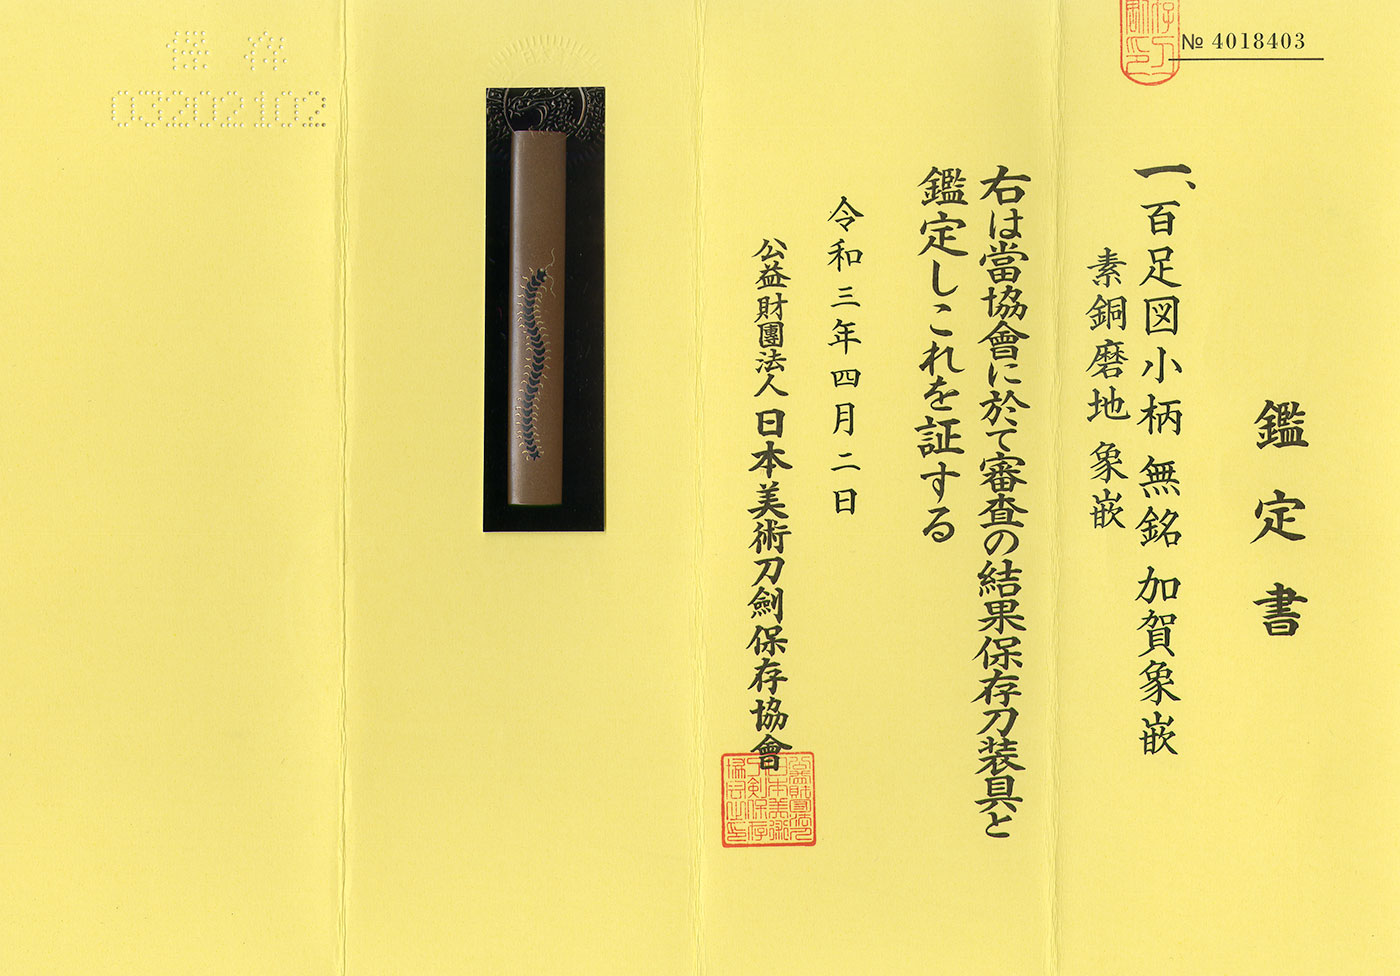 № 4018403
鑑定書
一、百足図小柄 無銘 加賀象嵌
素銅磨地 象嵌
右は當協會に於て審査の結果保存刀装具と
鑑定しこれを証する
令和三年四月二日
公益財團法人日本美術刀劍保存協會
保存
03202102